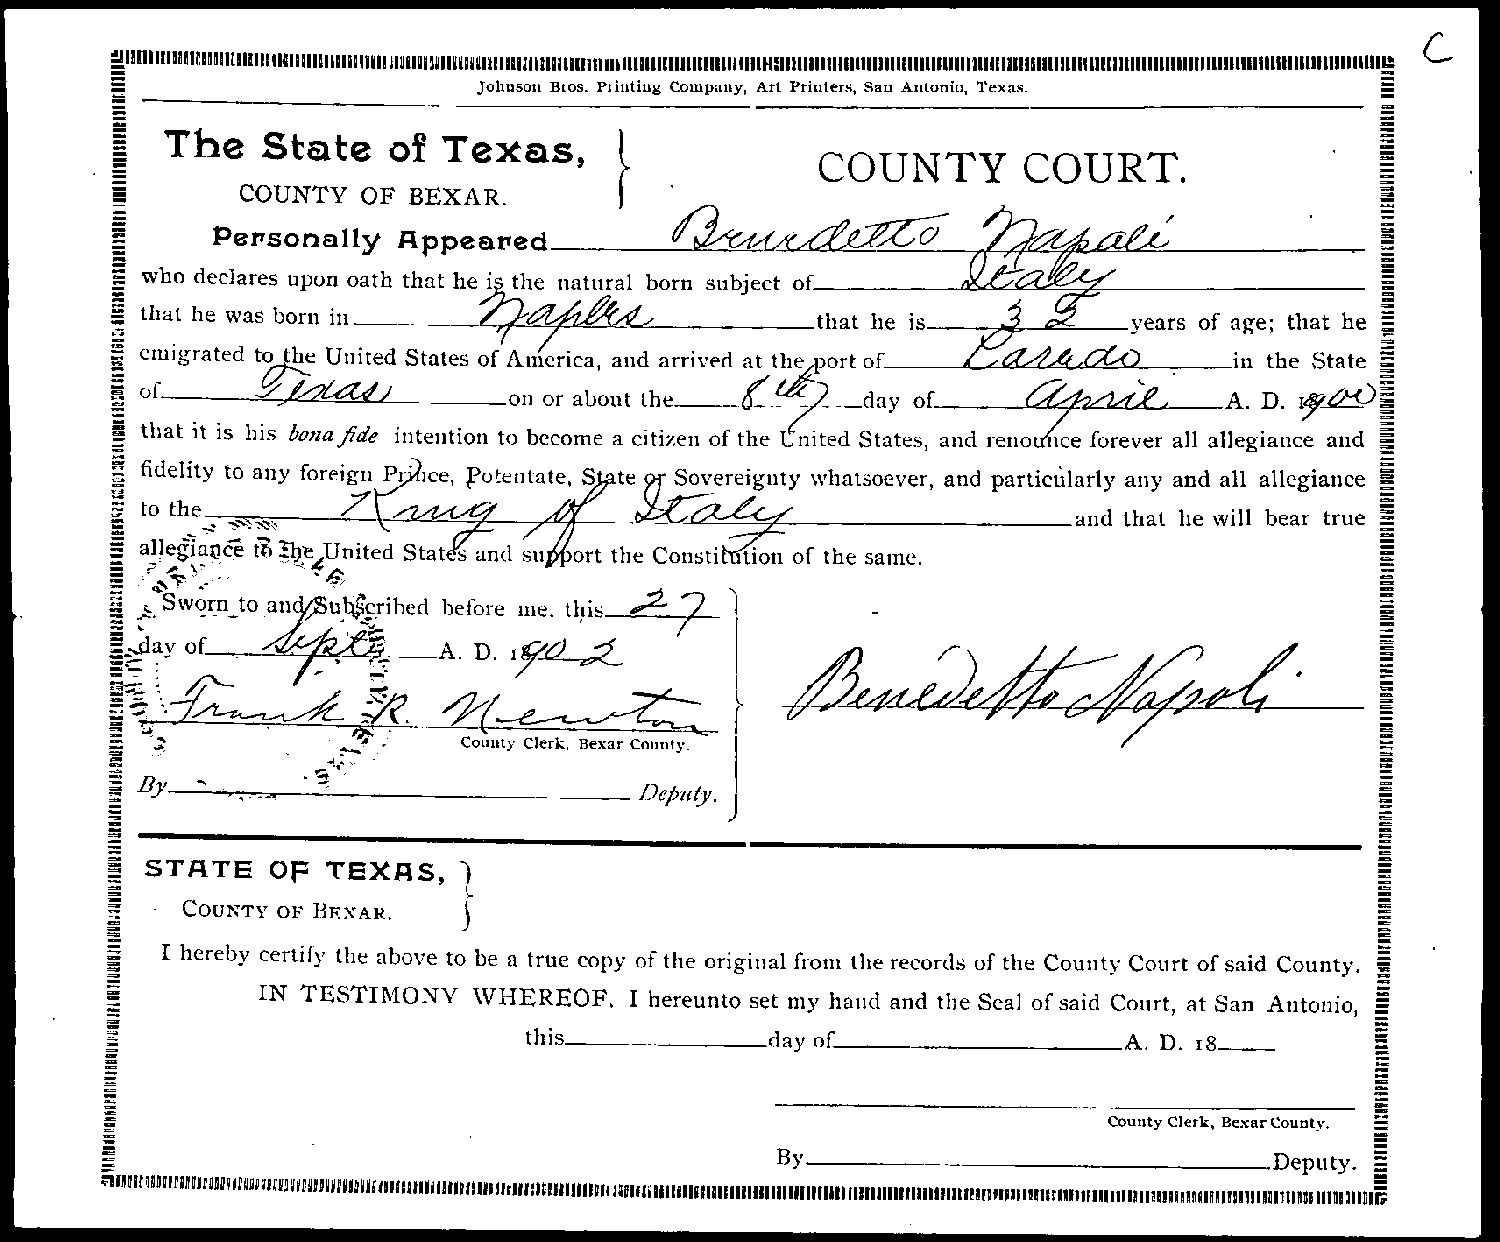 C
Johnson Bros. Printing Company, Art Printers, San Antonio, Texas.
The State of Texas,
COUNTY OF BEXAR.
COUNTY COURT.
Personally Appeared Benedetto Napali
who declares upon oath that he is the natural born subject of Italy
that he was born in Naples that he is 32 years of age; that he
emigrated to the United States of America, and arrived at the port of Laredo in the State
of Texas on or about the 8th day of April A. D. 1900
that it is his bona fide intention to become a citizen of the United States, and renounce forever all allegiance and
fidelity to any foreign Prince, Potentate, State or Sovereignty whatsoever, and particularly any and all allegiance
to the King of Italy and that he will bear true
allegiance to the United States and support the Constitution of the same.
Sworn to and Subscribed before me, this 27
day of Sept A. D. 1902
Frank R. Newton
County Clerk, Bexar County.
By Deputy.
Benedetto Napoli
STATE OF TEXAS,
COUNTY OF BEXAR.
I hereby certify the above to be a true copy of the original from the records of the County Court of said County.
IN TESTIMONY WHEREOF, I hereunto set my hand and the Seal of said Court, at San Antonio,
this day of A. D. 18
County Clerk, Bexar County.
By Deputy.